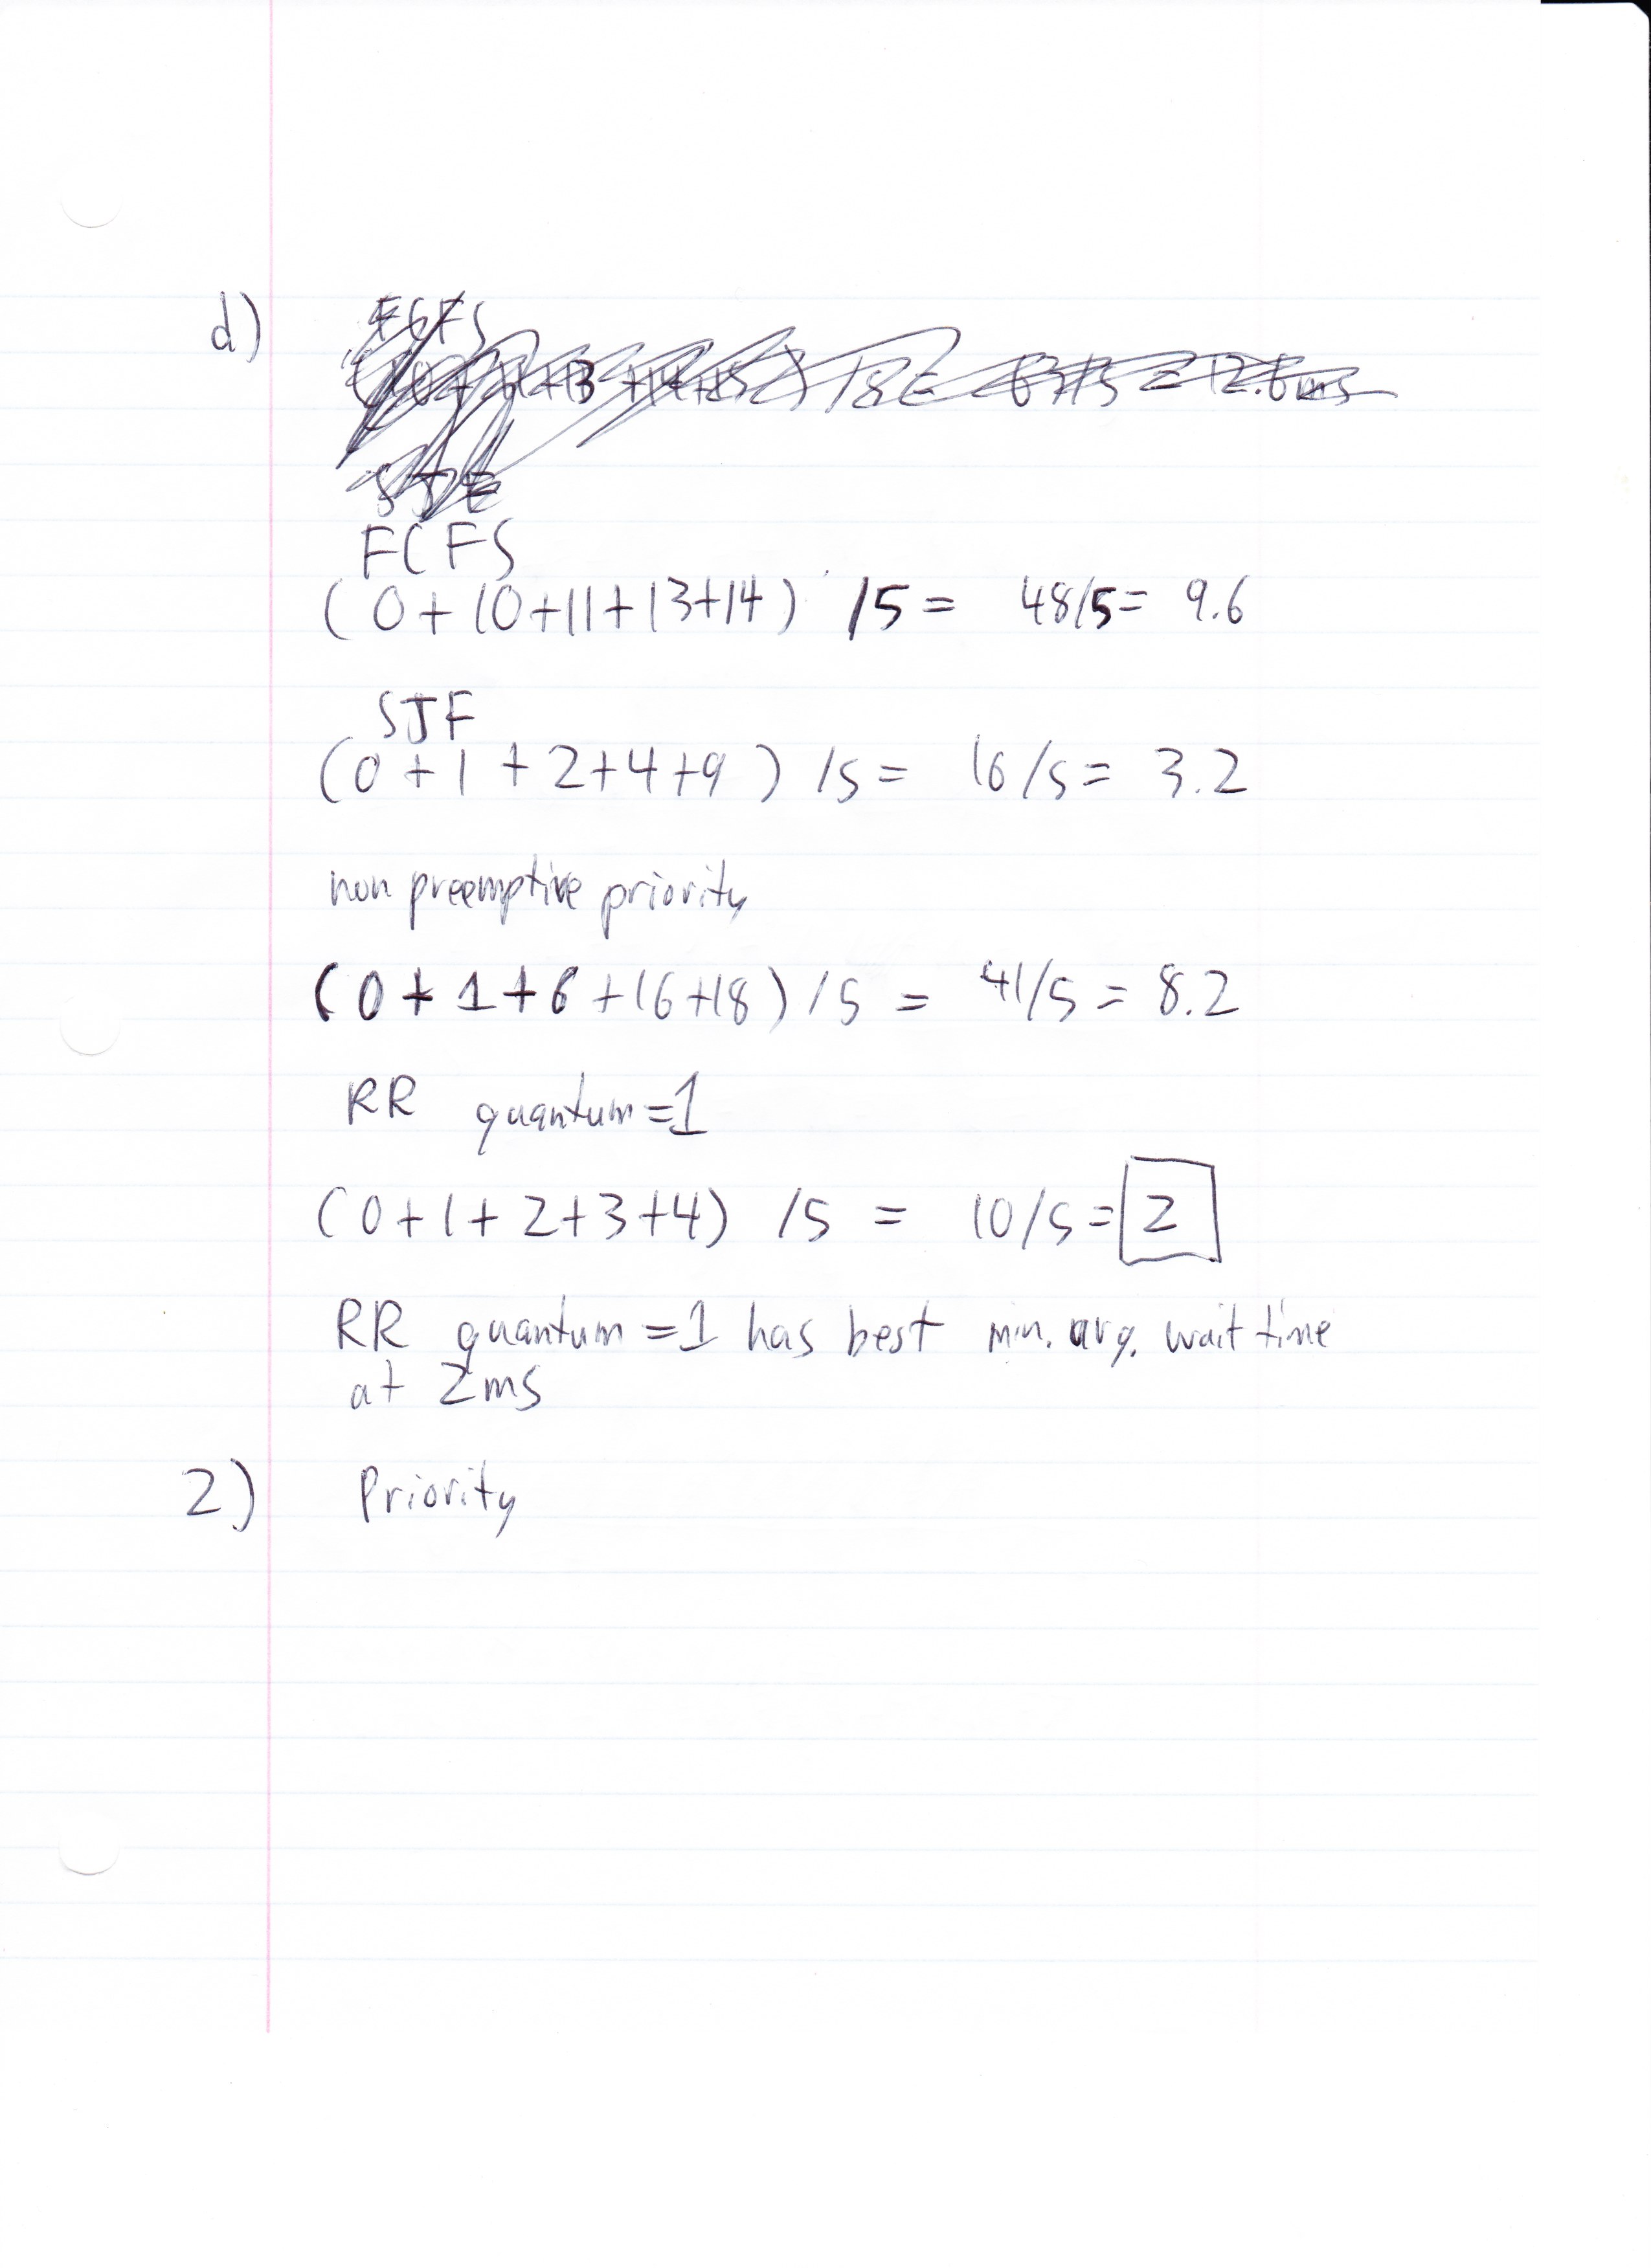 d)
FCFS
(0+10+11+13+14) /5 = 48/5= 9.6
SJF
(0+1+2+4+9) /5= 16/5= 3.2
non preemptive priority
(0+1+6+16+18)/5 = 41/5= 8.2
RR quantum=1
(0+1+2+3+4) /5 = 10/5= 2
RR quantum=1 has best min. avg. wait time
at 2ms
2) Priority